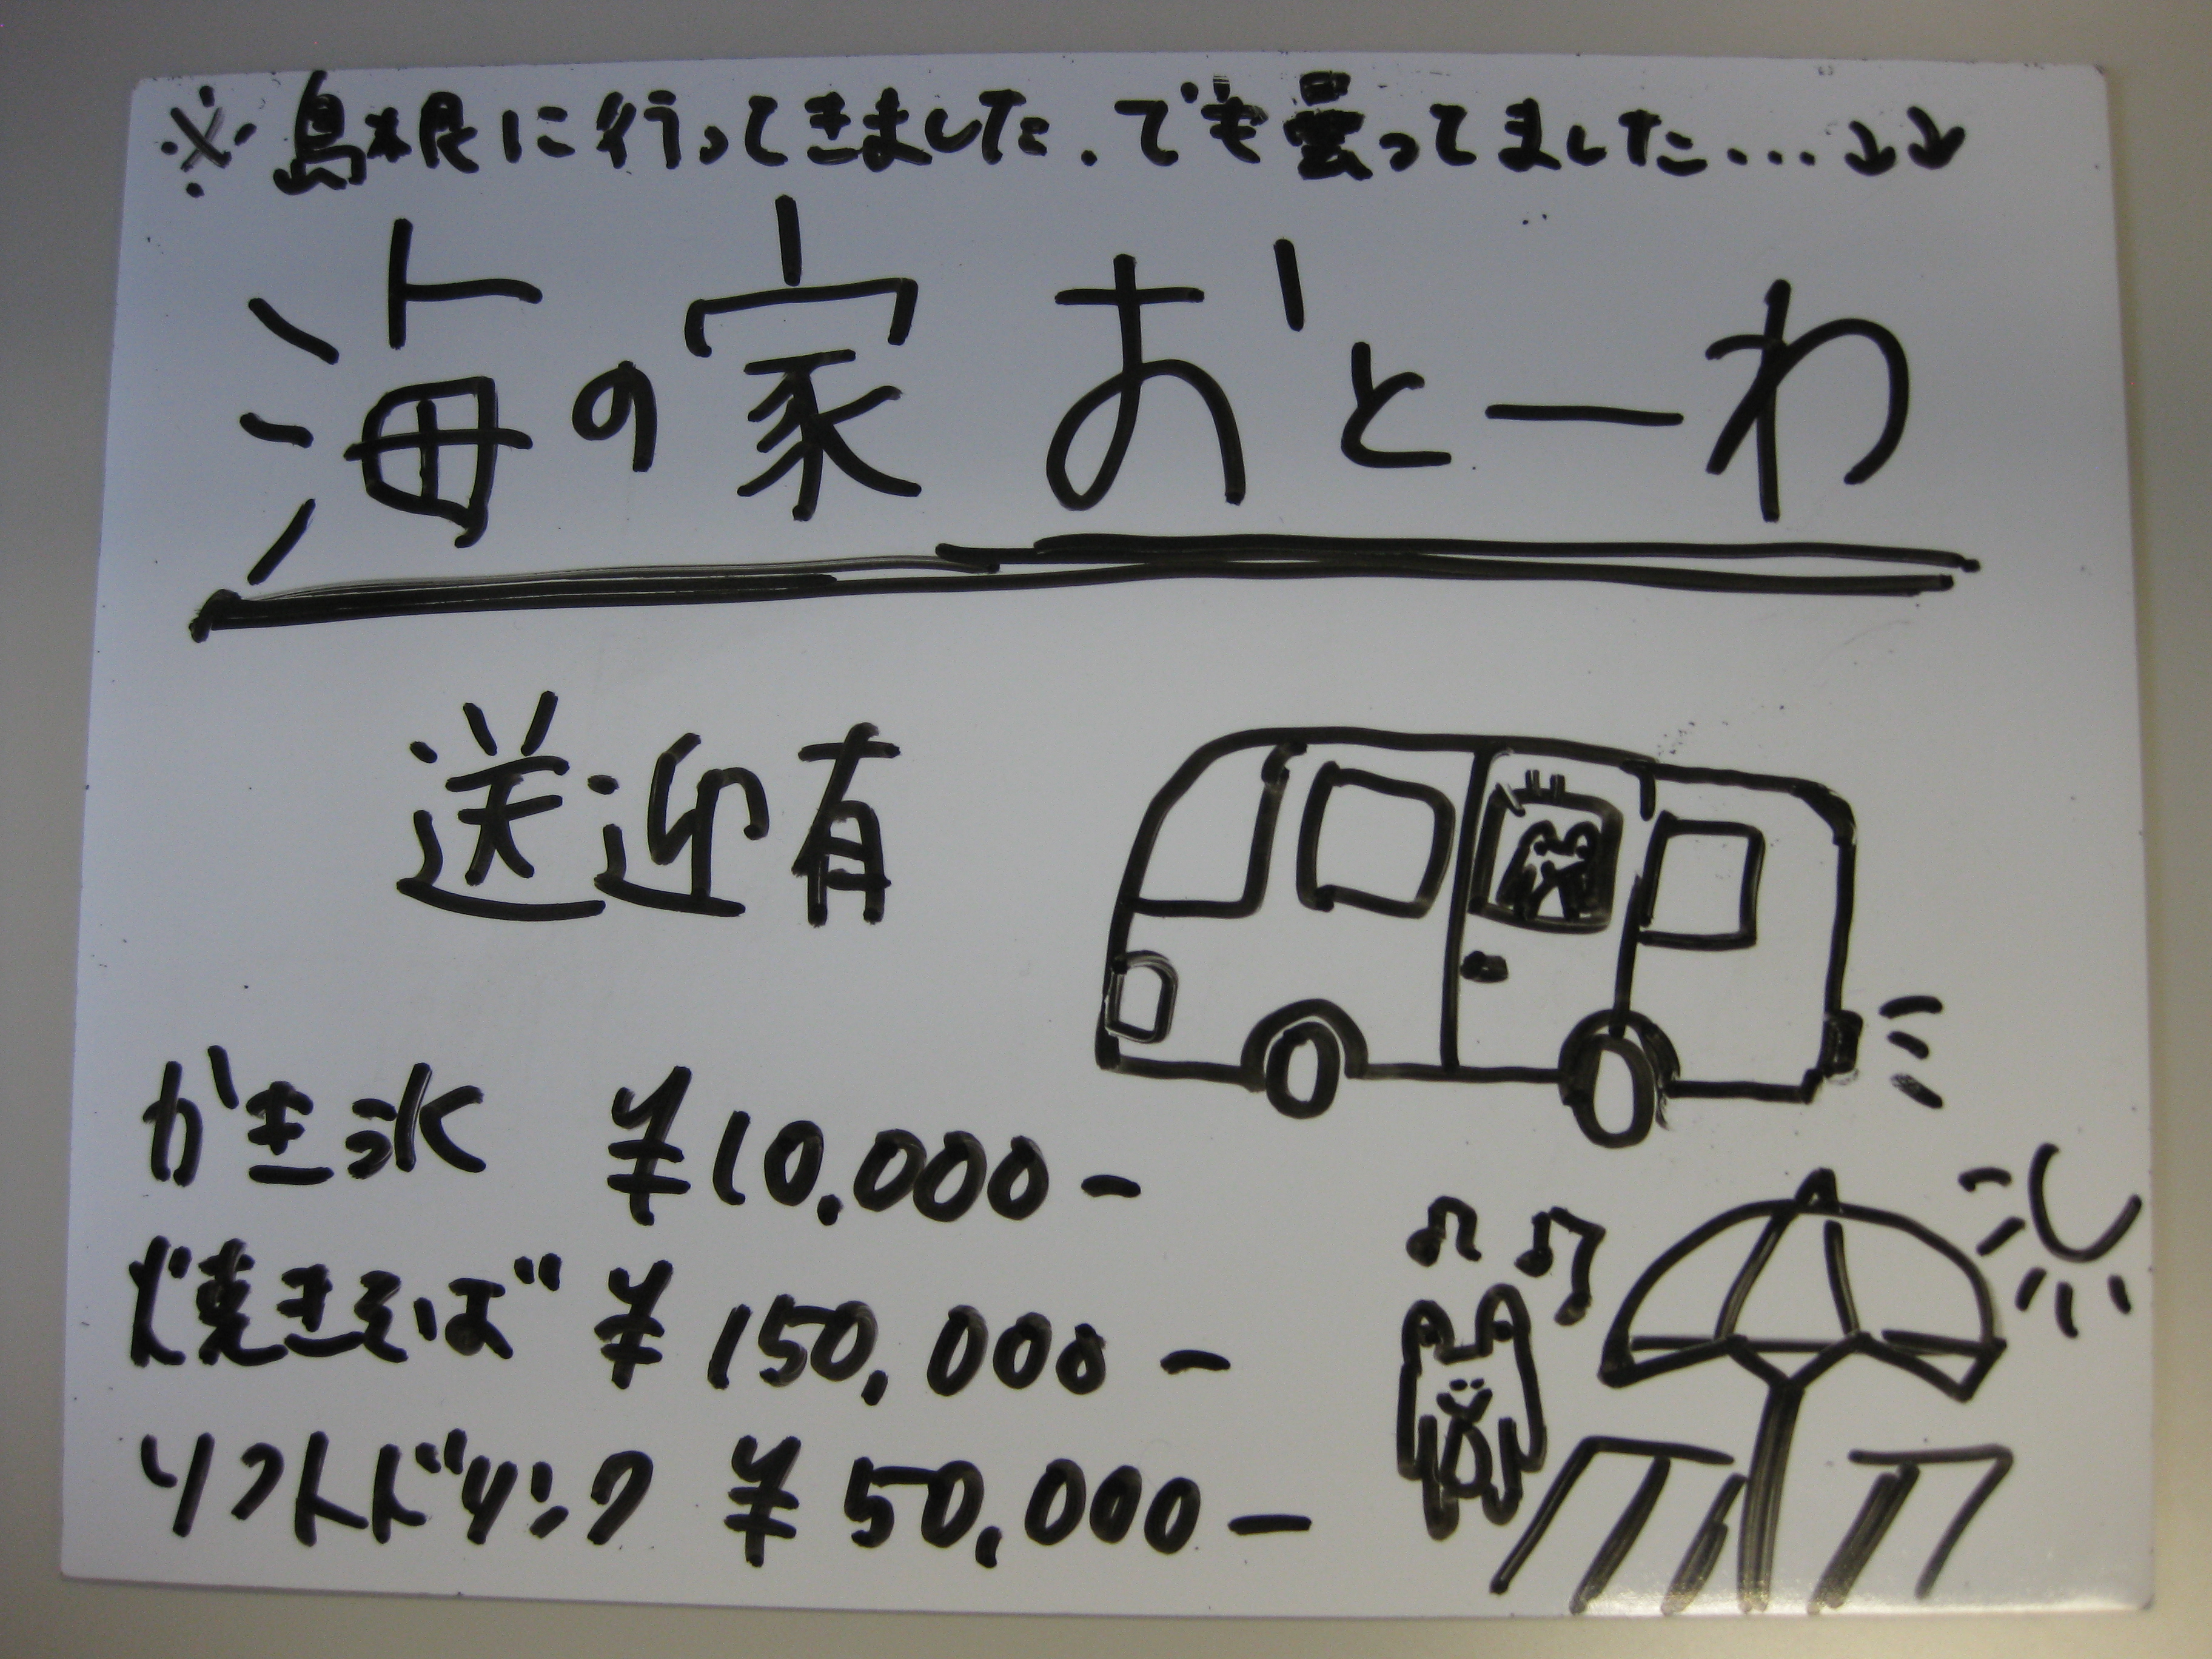 ※島根に行ってきました.でも曇ってました...↓↓
海の家 おとーわ
送迎有
かき氷 ¥10,000-
焼きそば ¥150,000-
ソフトドリンク ¥50,000-